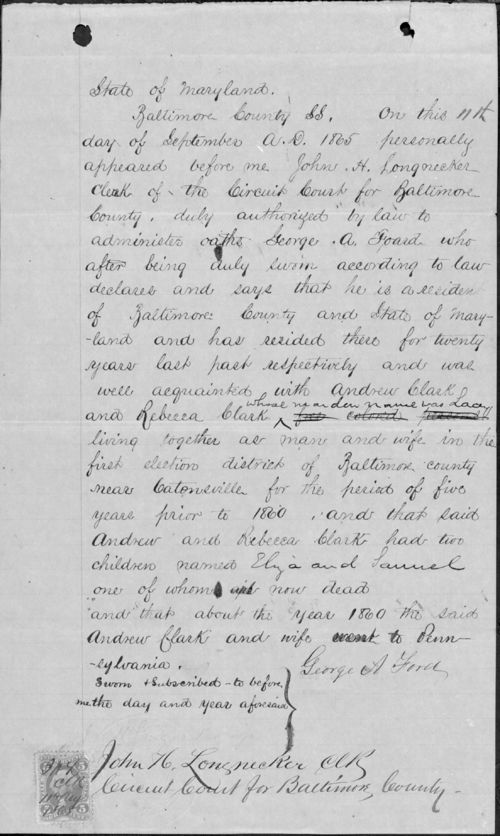 State of Maryland.
Baltimore County SS. On this 11th
day of September A.D. 1865 personally
appeared before me John H. Longnecker
Clerk of the Circuit Court for Baltimore
County, duly authorized by law to
administer oaths George A. Foard who
after being duly sworn according to law
declares and says that he is a resident
of Baltimore County and State of Mary-
-land and has resided there for twenty
years last past respectively and was
well acquainted with Andrew Clark
whose maiden name was Lacy
and Rebecca Clark free colored persons
living together as man and wife in the
first election district of Baltimore county
near Catonsville for the period of five
years prior to 1860, and that said
Andrew and Rebecca Clark had two
children named Eliza and Samuel
one of whom is now dead
"and" that about the year 1860 the said
Andrew Clark and wife went to Penn-
-sylvania.
George A Ford
Sworn & Subscribed to before
me the day and year aforesaid
John H. Longnecker Clk
Circuit Court for Baltimore County